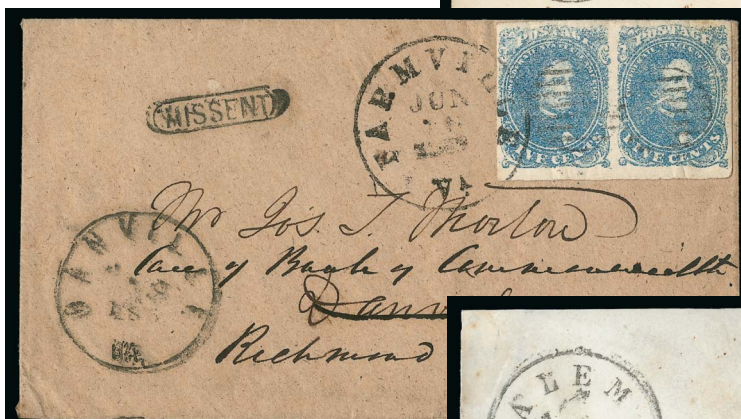 MISSENT
FARMVILLE
JUN
VA
POSTAGE POSTAGE
FIVE CENTS FIVE CENTS
DANVILLE
VA.
Mr Jos. T. Morton
Care of Bank of Commonwealth
Danv
Richmond
ALEM